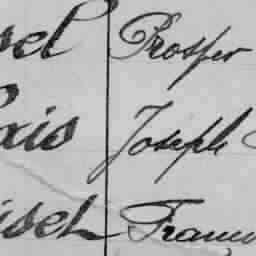 sel Prosper
xis Joseph
isch Franc